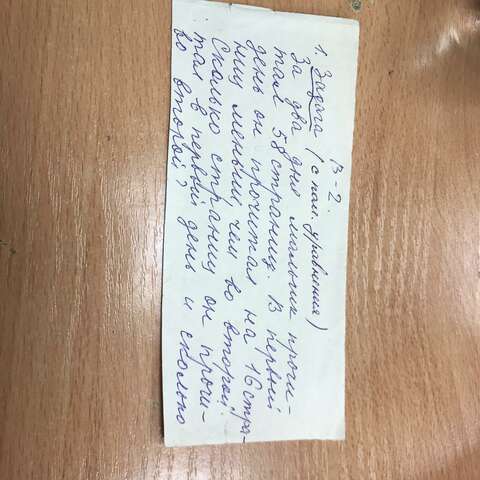 В-2.
1. Задача (с пом. уравнения)
За два дня мальчик прочи-
тал 58 страниц. В первый
день он прочитал на 16 стра-
ниц меньше, чем во второй.
Сколько страниц он прочи-
тал в первый день и сколько
во второй?